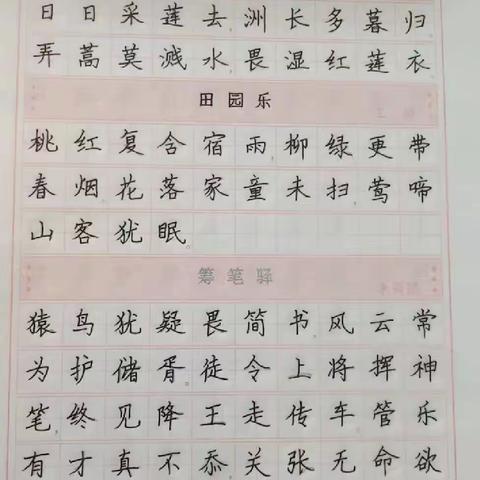 日日采莲去洲长多暮归
弄蒿莫溅水畏湿红莲衣。
田园乐
桃红复含宿雨,柳绿更带
春烟花落家童未扫莺啼
山客犹眠。
筹笔驿
猿鸟犹疑畏简书风云常
为护储胥徒令上将挥神
笔,终见降王走传车。管乐
有才真不忝关张无命欲